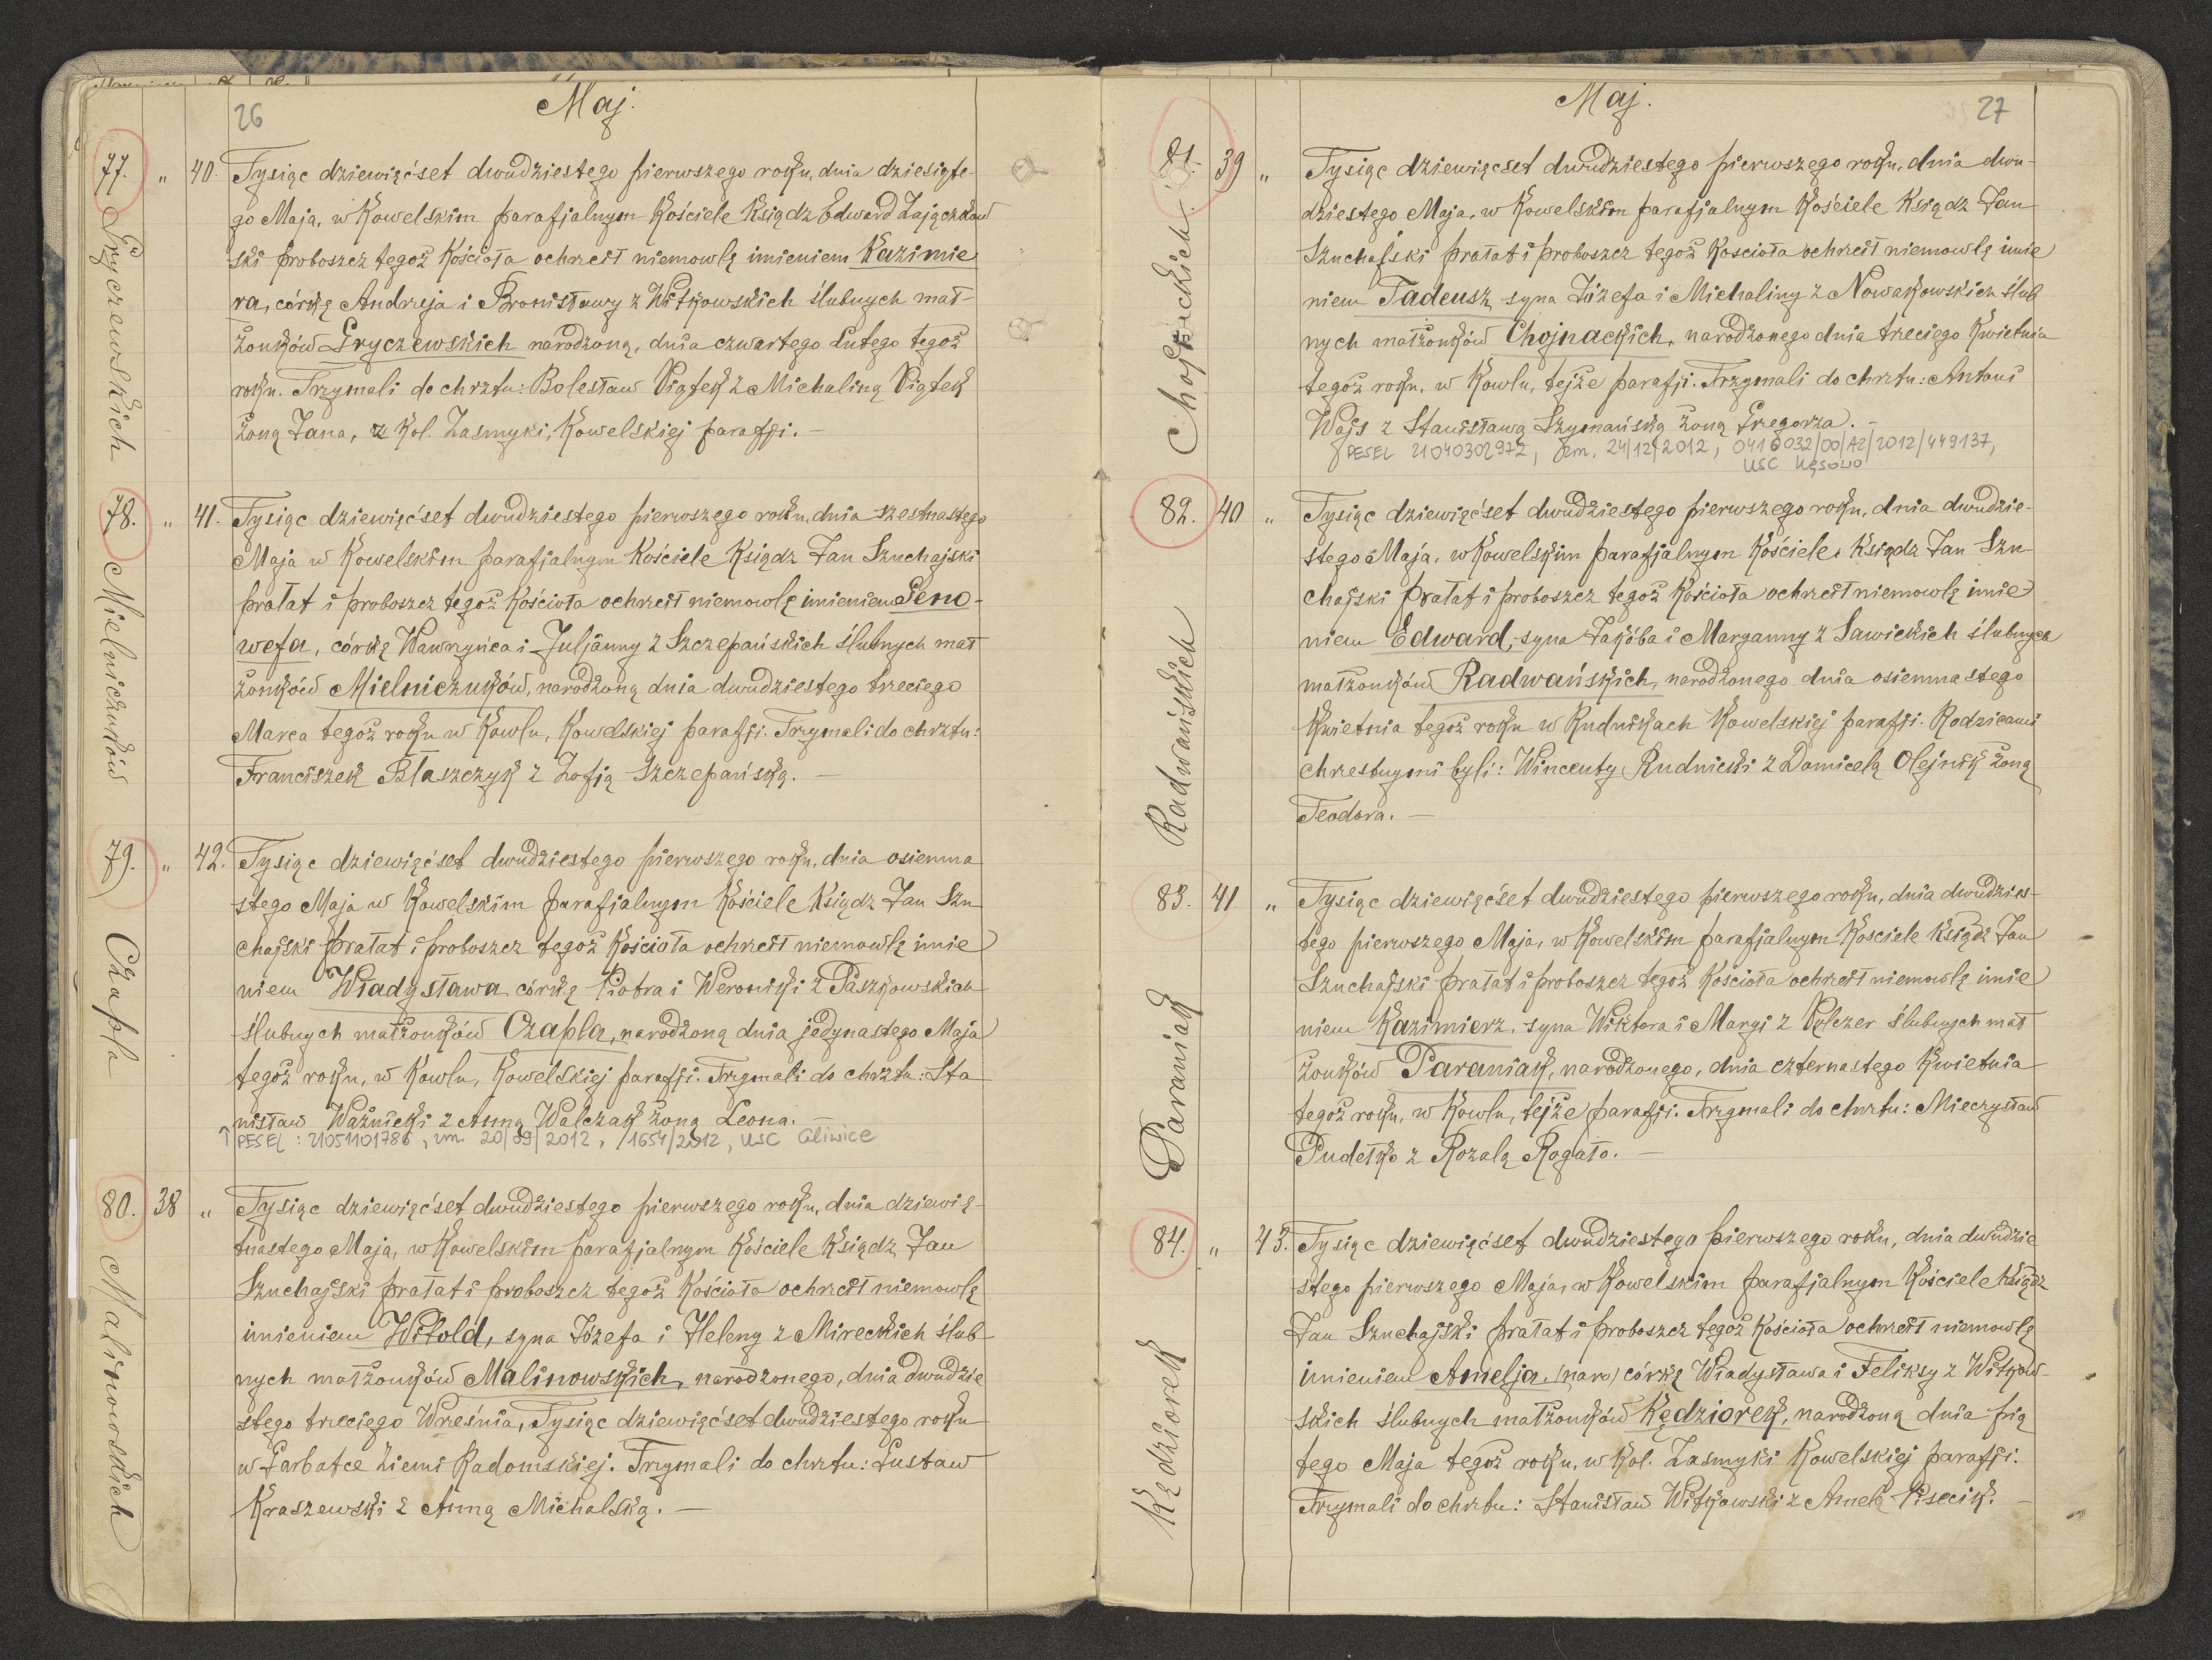 26
Maj.
77. " 40. Gryczewskich
Tysiąc dziewięćset dwudziestego pierwszego roku, dnia dziesiąte-
go Maja, w Kowelskim parafjalnym Kościele Ksiądz Edward Zajączkow
ski proboszcz tegoż Kościoła ochrzcił niemowlę imieniem Kazimie
ra, córkę Andrzeja i Bronisławy z Witkowskich ślubnych mał-
żonków Gryczewskich narodzoną, dnia czwartego Lutego tegoż
roku. Trzymali do chrztu: Bolesław Piątek z Michaliną Piątek
żoną Jana, z Kol. Zasmyki, Kowelskiej parafji. —
78. " 41. Mielniczuków
Tysiąc dziewięćset dwudziestego pierwszego roku, dnia szesnastego
Maja w Kowelskim parafjalnym Kościele Ksiądz Jan Sznchajski
prałat i proboszcz tegoż Kościoła ochrzcił niemowlę imieniem Geno-
wefa, córkę Wawrzyńca i Juljanny z Szczepańskich ślubnych mał
żonków Mielniczuków, narodzoną dnia dwudziestego trzeciego
Marca tegoż roku w Kowlu, Kowelskiej parafji. Trzymali do chrztu:
Franciszek Błaszczyk z Zofją Szczepańską. —
79. " 42. Czapla
Tysiąc dziewięćset dwudziestego pierwszego roku, dnia osiemna
stego Maja w Kowelskim parafjalnym Kościele Ksiądz Jan Szn
chajski prałat i proboszcz tegoż Kościoła ochrzcił niemowlę imie
niem Władysława córkę Piotra i Weroniki z Paszkowskich
ślubnych małżonków Czapla, narodzoną dnia jedynastego Maja
tegoż roku, w Kowlu, Kowelskiej parafji. Trzymali do chrztu: Sta
nisław Waźnicki z Anną Walczak żoną Leona. —
↑ PESEL: 21051101786, zm. 20/09/2012, 1654/2012, USC Gliwice
80. 38 " Malinowskich
Tysiąc dziewięćset dwudziestego pierwszego roku, dnia dziewię-
tnastego Maja, w Kowelskim parafjalnym Kościele Ksiądz Jan
Sznchajski prałat i proboszcz tegoż Kościoła ochrzcił niemowlę
imieniem Witold, syna Józefa i Heleny z Mireckich ślub-
nych małżonków Malinowskich, narodzonego, dnia dwudzie
stego trzeciego Wreśnia, Tysiąc dziewięćset dwudziestego roku
w Garbatce Ziemi Radomskiej. Trzymali do chrztu: Gustaw
Kraszewski z Anną Michalską. —
Maj.
27
81. 39 " Chojnackich
Tysiąc dziewięćset dwudziestego pierwszego roku, dnia dwu-
dziestego Maja, w Kowelskim parafjalnym Kościele Ksiądz Jan
Sznchajski prałat i proboszcz tegoż Kościoła ochrzcił niemowlę imie
niem Tadeusz syna Józefa i Michaliny z Nowakowskich ślub
nych małżonków Chojnackich, narodzonego dnia trzeciego Kwietnia
tegoż roku, w Kowlu, tejże parafji. Trzymali do chrztu: Antoni
Wajs z Stanisławą Szymańską żoną Gregorza. —
PESEL 21040302972, zm. 24/12/2012, 0416032/00/AZ/2012/449137,
USC Kęsowo
82. 40 " Radwańskich
Tysiąc dziewięćset dwudziestego pierwszego roku, dnia dwudzie-
stego Maja, w Kowelskim parafjalnym Kościele Ksiądz Jan Szn-
chajski Prałat i proboszcz tegoż Kościoła ochrzcił niemowlę imie
niem Edward, syna Jakóba i Marganny z Sawickich ślubnych
małżonków Radwańskich, narodzonego dnia osiemnastego
Kwietnia tegoż roku w Rudnikach Kowelskiej parafji. Rodzicami
chrzestnymi byli: Wincenty Rudnicki z Domicelą Olejnik żoną
Teodora. —
83. 41 " Paraniak
Tysiąc dziewięćset dwudziestego pierwszego roku, dnia dwudzies-
tego pierwszego Maja, w Kowelskim parafjalnym Kościele Ksiądz Jan
Sznchajski prałat i proboszcz tegoż Kościoła ochrzcił niemowlę imie
niem Kazimierz, syna Wiktora i Maryi z Pelczer ślubnych mał
żonków Paraniak, narodzonego, dnia czternastego Kwietnia
tegoż roku, w Kowlu, tejże parafji. Trzymali do chrztu: Mieczysław
Pudełko z Rozalą Rogato. —
84. " 43. Kędziorek
Tysiąc dziewięćset dwudziestego pierwszego roku, dnia dwudzie
stego pierwszego Maja, w Kowelskim parafjalnym Kościele Ksiądz
Jan Sznchajski prałat i proboszcz tegoż Kościoła ochrzcił niemowlę
imieniem Amelja, (naro) córkę Władysława i Feliksy z Witkow-
skich ślubnych małżonków Kędziorek, narodzoną dnia pią
tego Maja tegoż roku, w Kol. Zasmyki Kowelskiej parafji.
Trzymali do chrztu: Stanisław Witkowski z Amelą Pisecik. —